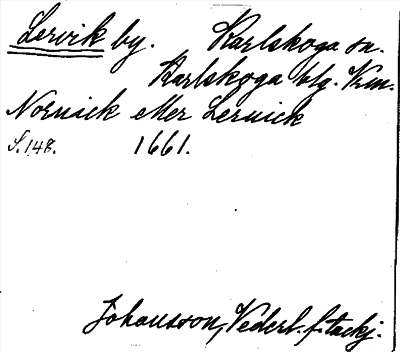 Lervik by. Karlskoga sn.
Karlskoga blg. Vrm.
Norvick eller Lervick
S. 148. 1661.
Johansson, Vederl. f. tackj.